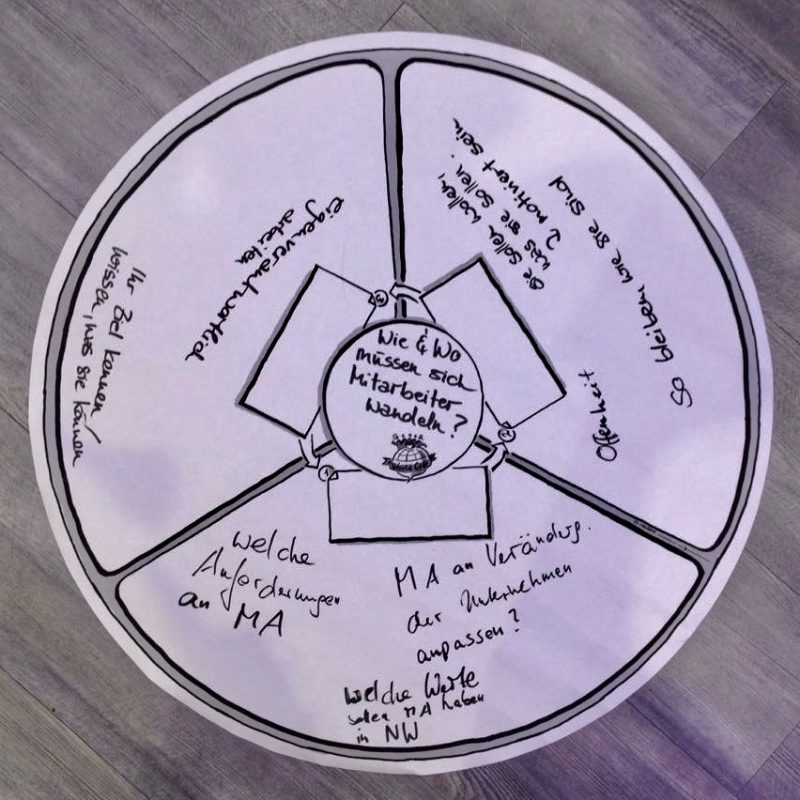 Wie & Wo
müssen sich
Mitarbeiter
wandeln?
1
welche
Anforderungen
an MA
MA an Verändug.
der Unternehmen
anpassen?
welche Werte
sollen MA haben
in NW
2
Sie sollen wollen,
was sie sollen.
motiviert sein
So bleiben, wie sie sind
Offenheit
3
eigenverantwortlich
arbeiten
Ihr Ziel kennen
wissen, was sie können